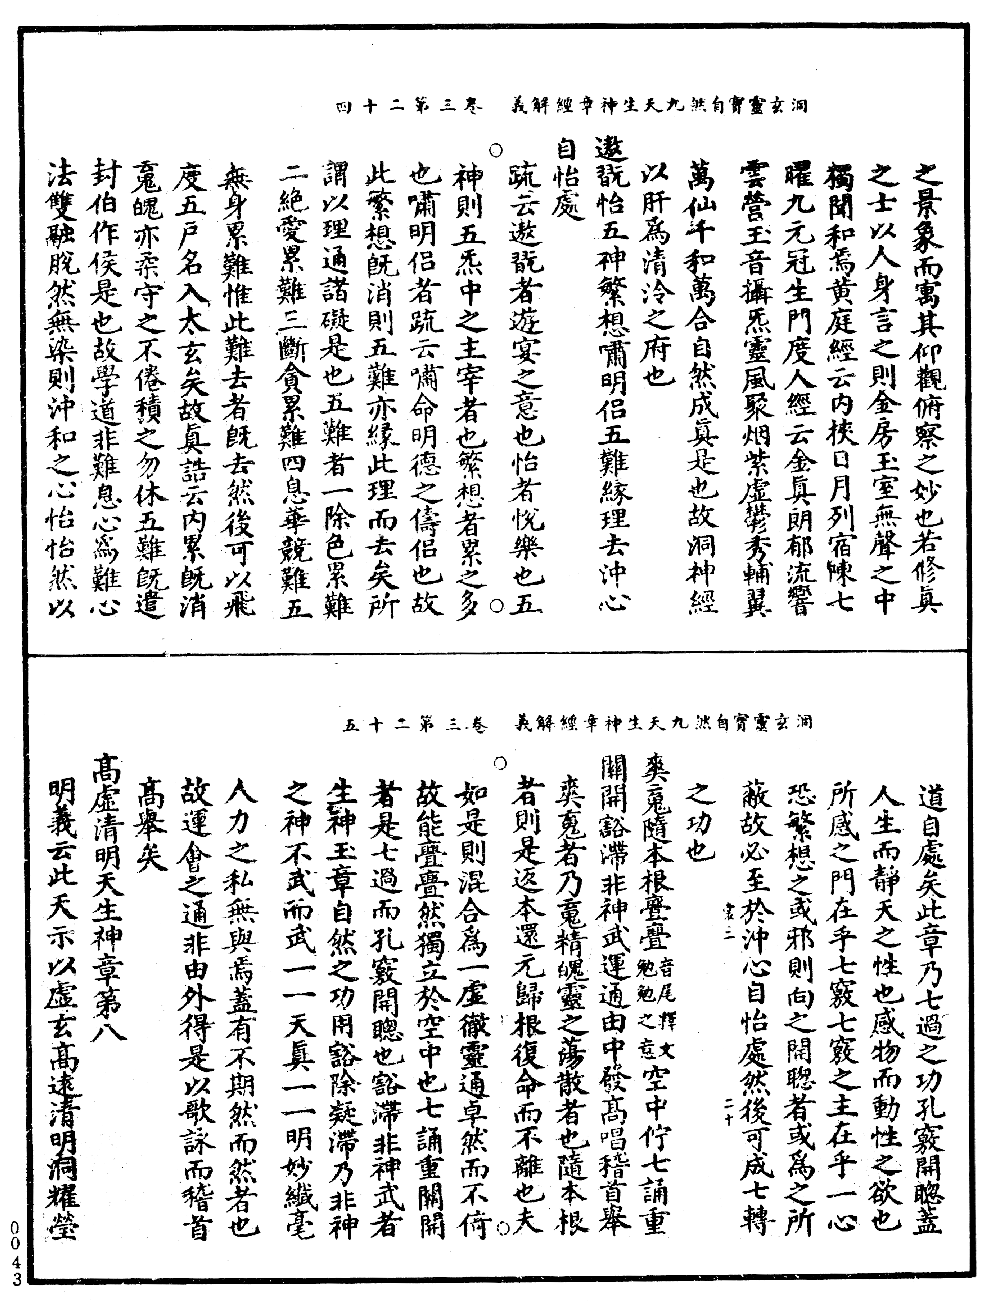 洞玄靈寶自然九天生神章經解義　卷三第二十四
之景象而寓其仰觀俯察之妙也若修眞
之士以人身言之則金房玉室無聲之中
獨聞和焉黄庭經云内挾日月列宿陳七
曜九元冠生門度人經云金眞朗郁流響
雲營玉音攝炁靈風聚烟紫虛鬱秀輔翼
萬仙千和萬合自然成眞是也故洞神經
以肝爲清泠之府也
遨翫怡五神繁想嘯明侶五難緣理去沖心
自怡處
疏云遨翫者遊宴之意也怡者悅樂也五
神則五炁中之主宰者也繁想者累之多
也嘯明侶者疏云嘯命明德之儔侶也故
此繁想旣消則五難亦緣此理而去矣所
謂以理通諸礙是也五難者一除色累難
二絶愛累難三斷貪累難四息華競難五
無身累難惟此難去者旣去然後可以飛
度五户名入太玄矣故眞誥云内累旣消
䰟魄亦柔守之不倦積之勿休五難旣遣
封伯作侯是也故學道非難息心爲難心
法雙融脫然無染則沖和之心怡怡然以
洞玄靈寶自然九天生神章經解義　卷三第二十五
道自處矣此章乃七過之功孔竅開聦蓋
人生而静天之性也感物而動性之欲也
所感之門在乎七竅七竅之主在乎一心
恐繁想之或邪則向之開聦者或爲之所
蔽故必至於沖心自怡處然後可成七轉
之功也
爽䰟隨本根亹亹音尾釋文勉勉之意空中佇七誦重
關開豁滯非神武運通由中發高唱稽首舉
爽䰟者乃䰟精魄靈之蕩散者也隨本根
者則是返本還元歸根復命而不離也夫
如是則混合爲一虛徹靈通卓然而不倚
故能亹亹然獨立於空中也七誦重關開
者是七過而孔竅開聦也豁滯非神武者
生神玉章自然之功用豁除凝滯乃非神
之神不武而武一一天眞一一明妙纖毫
人力之私無與焉蓋有不期然而然者也
故運會之通非由外得是以歌詠而稽首
高舉矣
高虛清明天生神章第八
明義云此天示以虛玄高遠清明洞耀瑩
0043